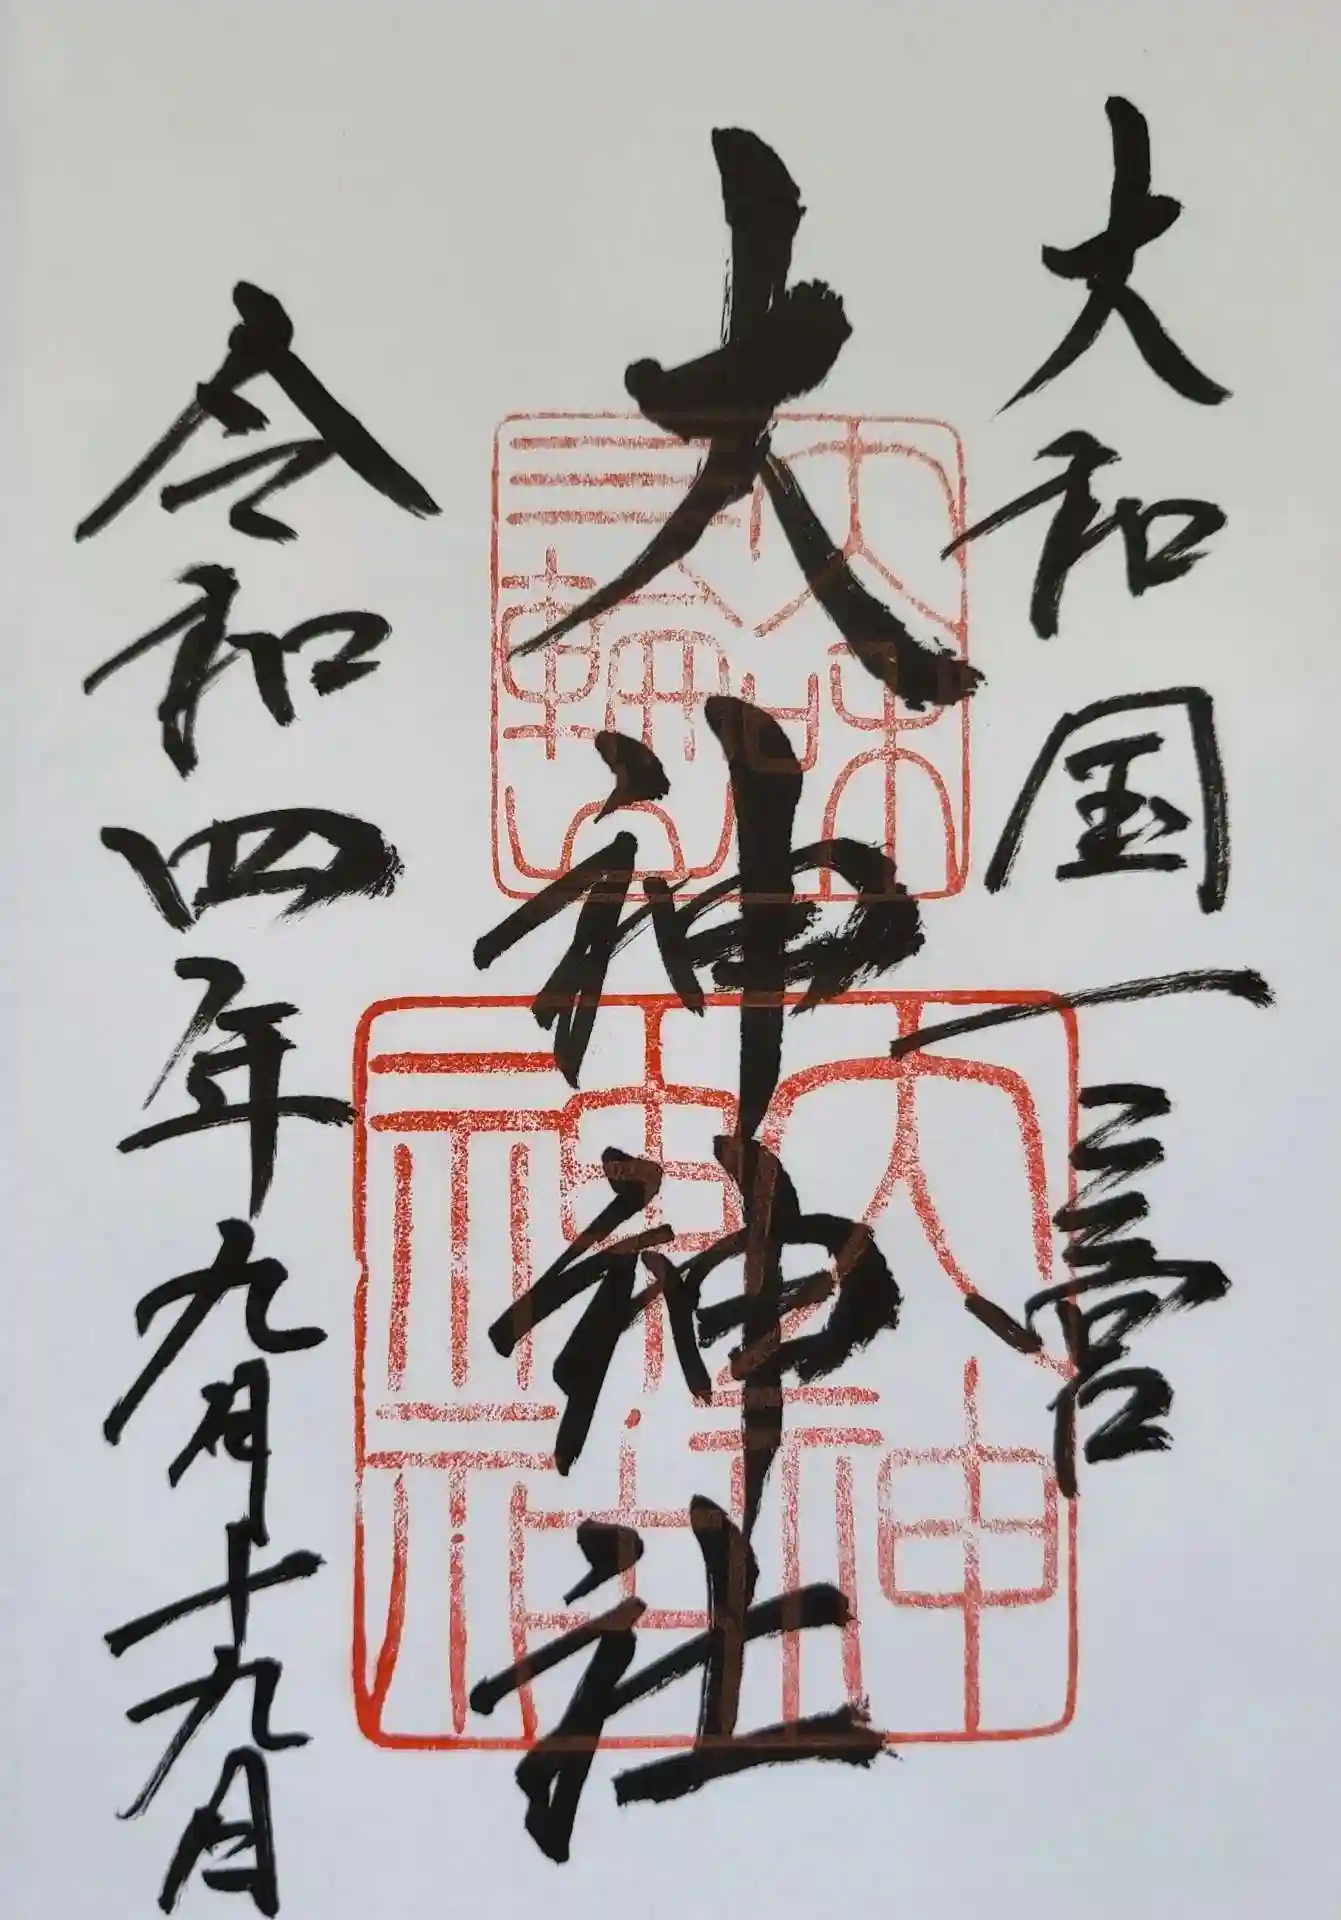 大和国一之宮
大神神社
令和四年九月十九日
大神
神社